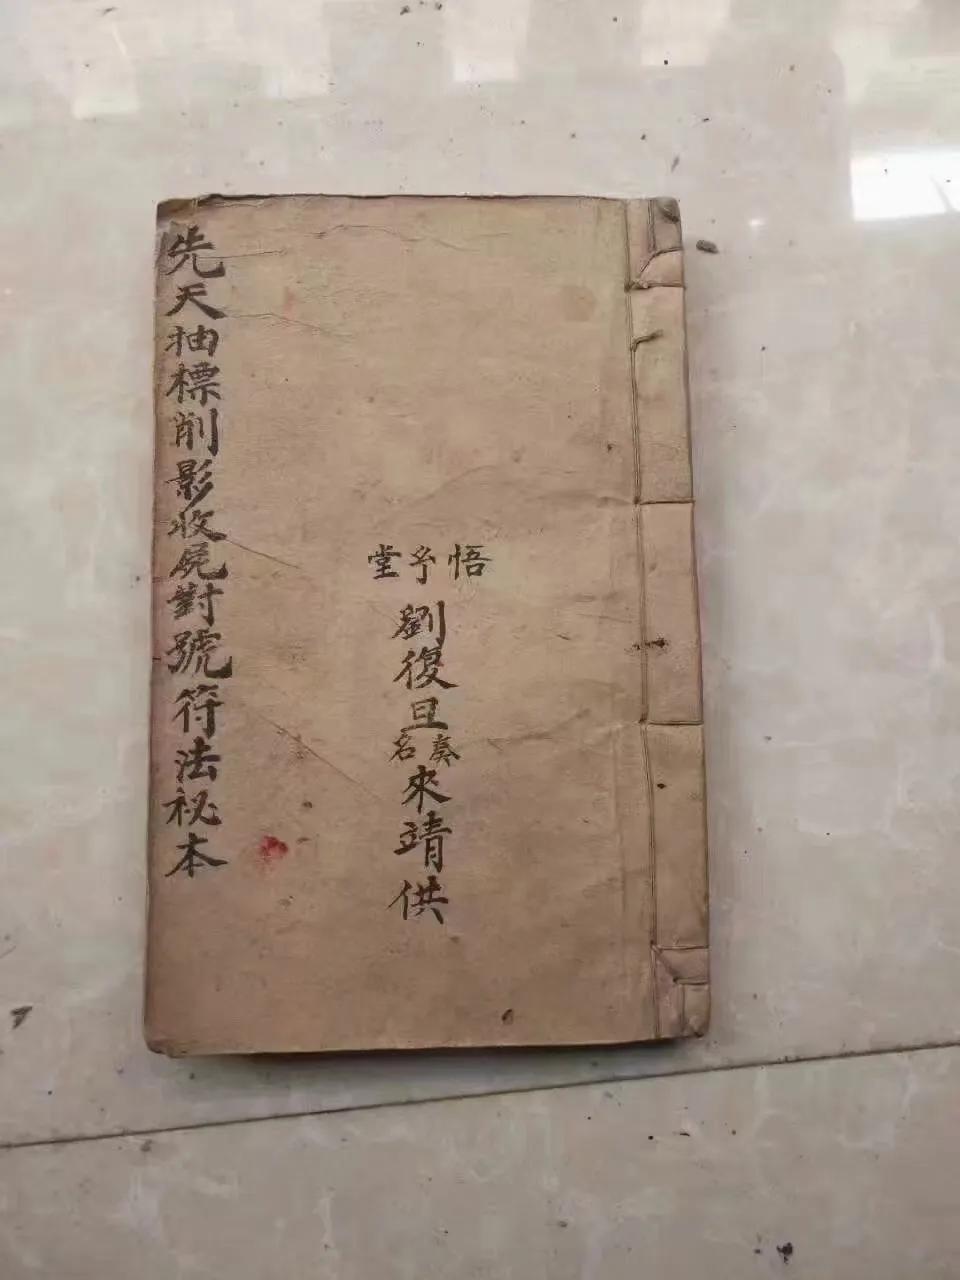 悟堂
劉復旦奏名來靖供
先天抽標削影收屍對號符法祕本